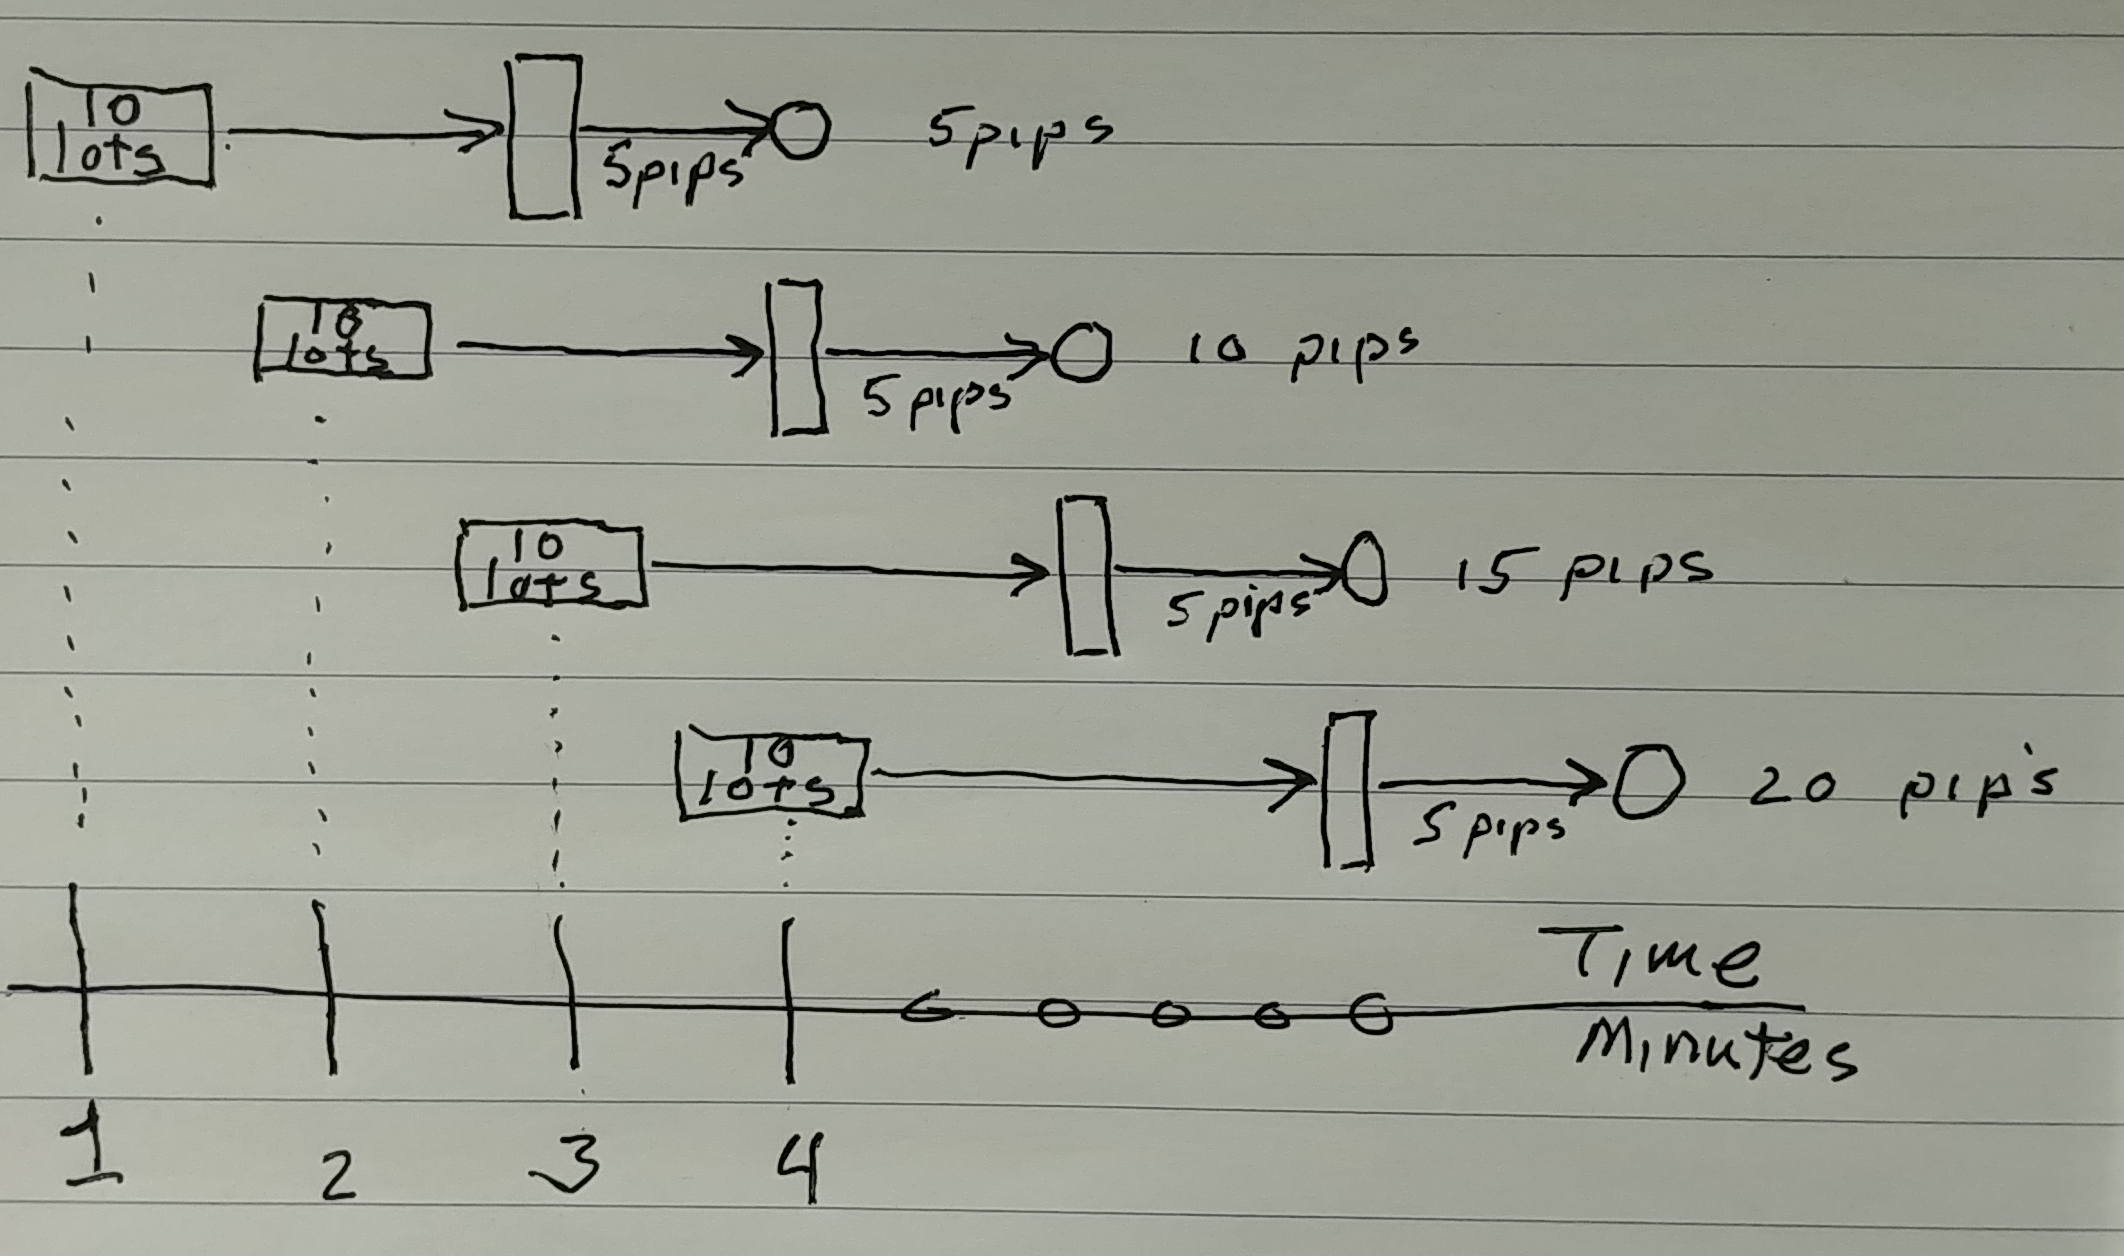 10
lots
5pips
5pips
10
lots
5 pips
10 pips
10
lots
5 pips
15 pips
10
lots
5 pips
20 pip's
Time
Minutes
1 2 3 4